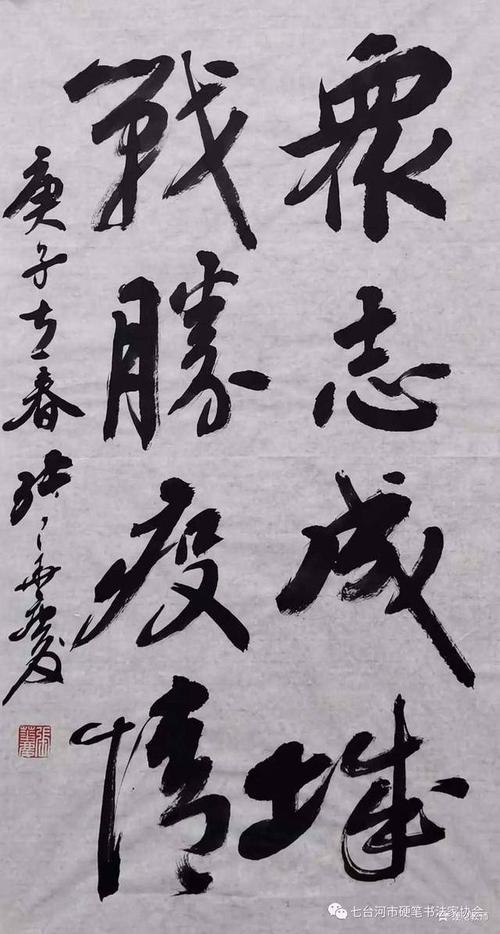 眾志成城
戰勝疫情
庚子立春
七台河市硬笔书法家协会